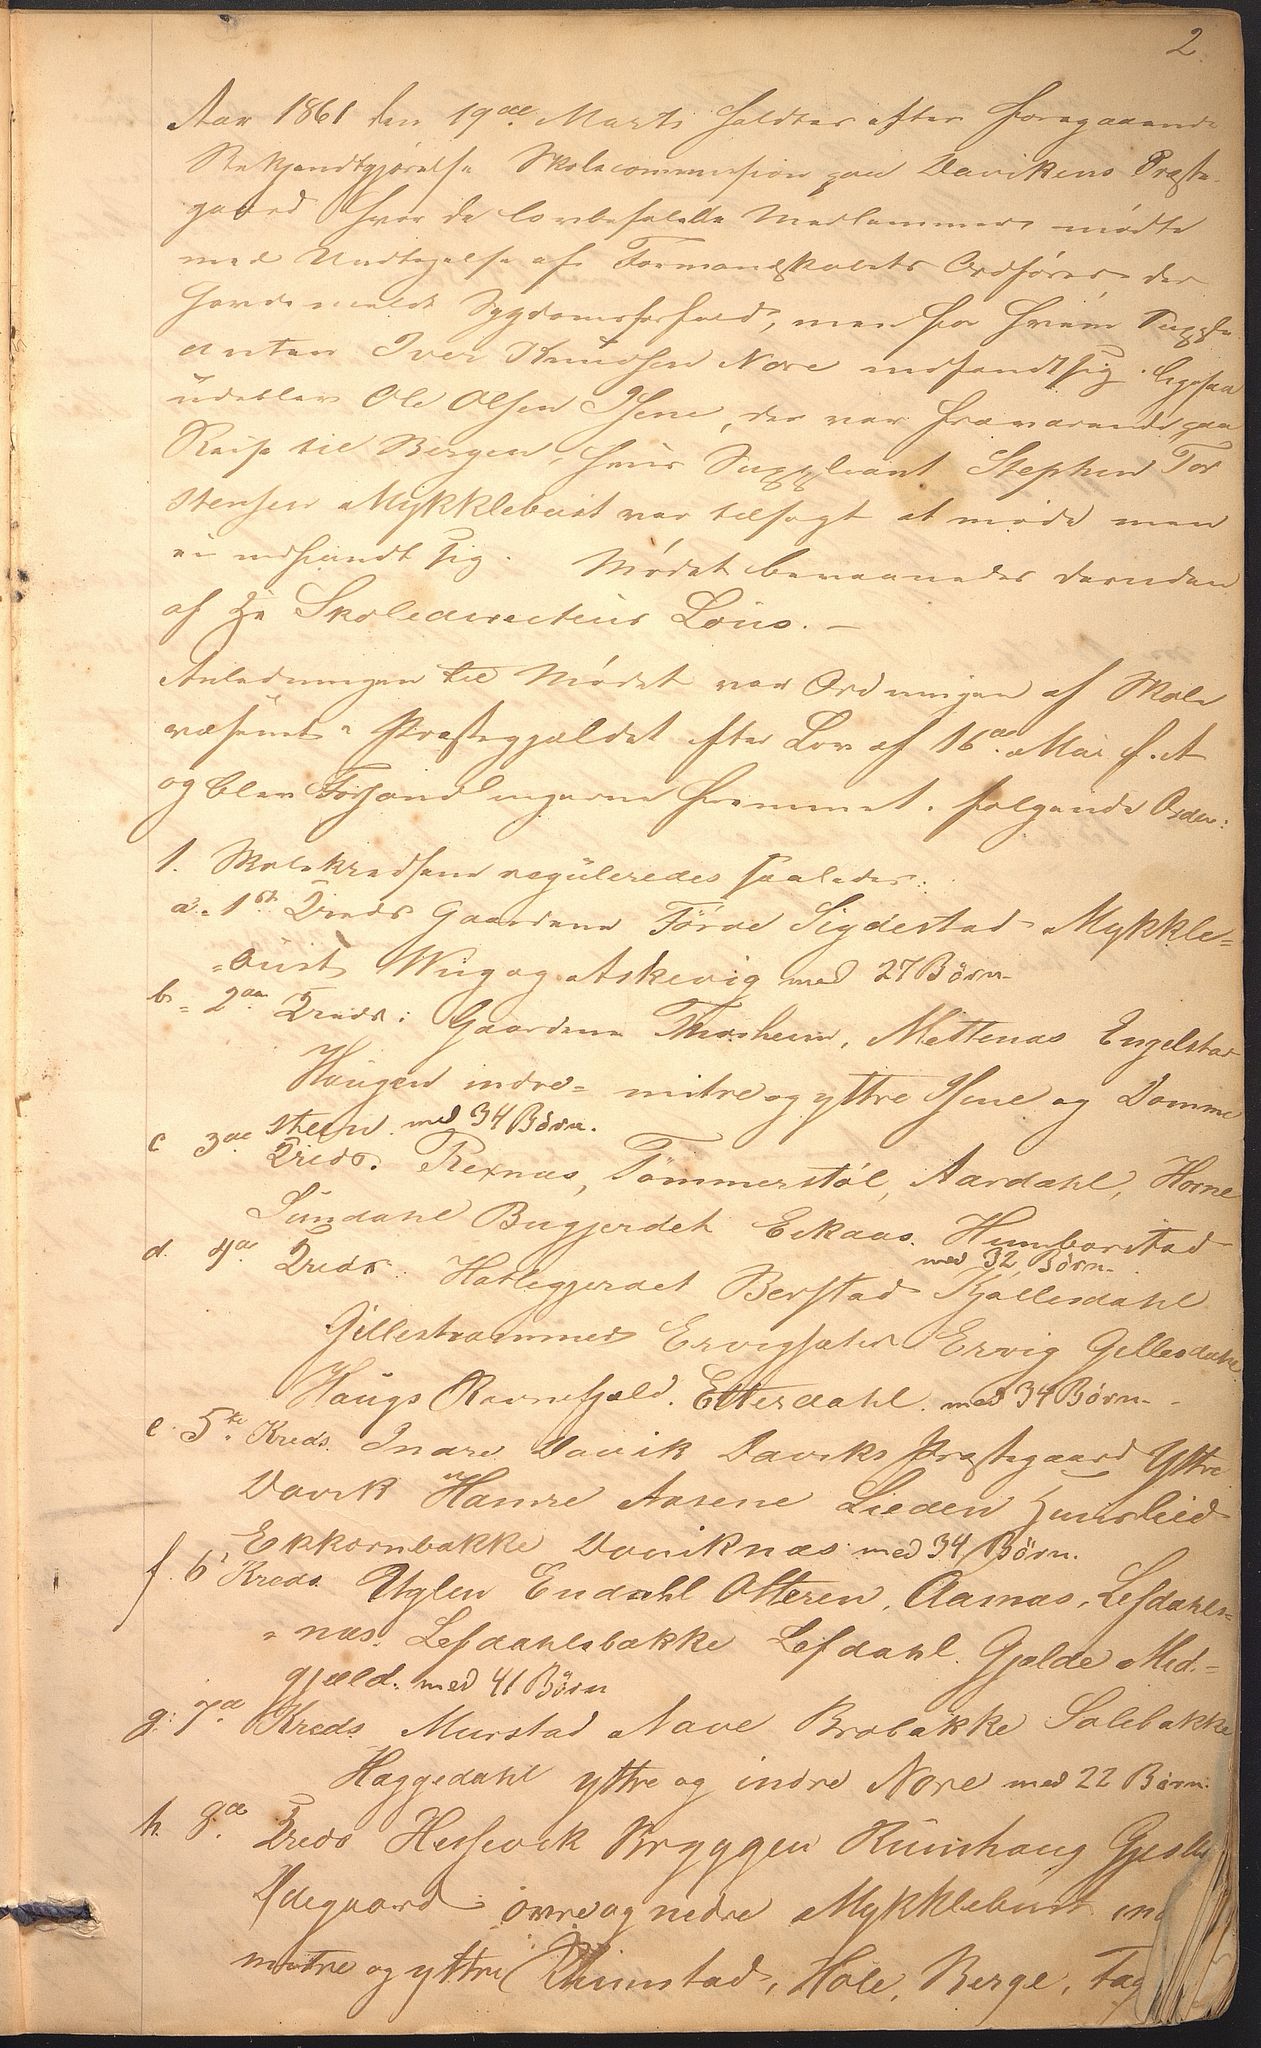 2.
Aar 1861 den 19de Marts holdtes efter foregaaende
Bekjendtgjørelse Skolecommission paa Davikens Præste-
gaard hvor de lovbefalede Medlemmer mødte
med Undtagelse af Formandskabets Ordfører, der
havde meldt Sygdomsforfald, men for hvem Supple-
anten Iver Knudsen Nore indfandt sig. Ligesaa
udeblev Ole Olsen Isene, der var fraværende paa
Reise til Bergen, hvis Suppleant Stephen Tor
stensen Mykklebust var tilsagt at møde men
ei indfandt sig. Mødet bivaanedes desuden
af Hr Skoledirecteur Löus. —
Anledningen til Mødet var Ordningen af Skole
væsenet i Præstegjældet efter Lov af 16de Mai f. A
og blev Forhandlingerne fremmet i følgende Orden:
1. Skolekredsene reguleredes saaledes:
a. 1ste Kreds Gaardene Förde Sigdestad Mykkle=
=bust Wiig og Askevig med 27 Börn
b. 2den Kreds: Gaardene Thosheim, Mettenæs Engelstad
Haugen indre= mitre og yttre Isene og Domme
steen med 34 Börn.
c 3de Kreds. Rexnæs, Tömmerstöl, Aardahl, Horne
Sundahl Bugjerdet Eekaas. Humborstad
med 32 Börn.
d. 4de Kreds. Hatlegjerdet Berstad Kjøllesdahl
Gillestrømmen Ervigsæter Ervig Gillesdahl
Haugs Ravnefjeld. Etterdahl. med 34 Börn.
e. 5te Kreds. Indre Davik Daviks Præstegaard Yttre
Davik Hamre Aasene Lieden Huuslied
Ekkornbakke Daviknæs med 34 Börn.
f. 6te Kreds. Uglen Endahl Otteren, Aarnæs, Lefdahls=
=næs. Lefdahlsbakke Lefdahl. Gjelde Mid.=
gjæld. med 41 Börn
g. 7de Kreds. Murstad Nave Brobakke Solebakke
Haggedahl yttre og indre Nore med 22 Börn.
h. 8de Kreds Hessevik Bryggen Ruushaug
Ødegaard övre og nedre Mykklebust
mitre og yttre Rimstad, Hole, Berge,